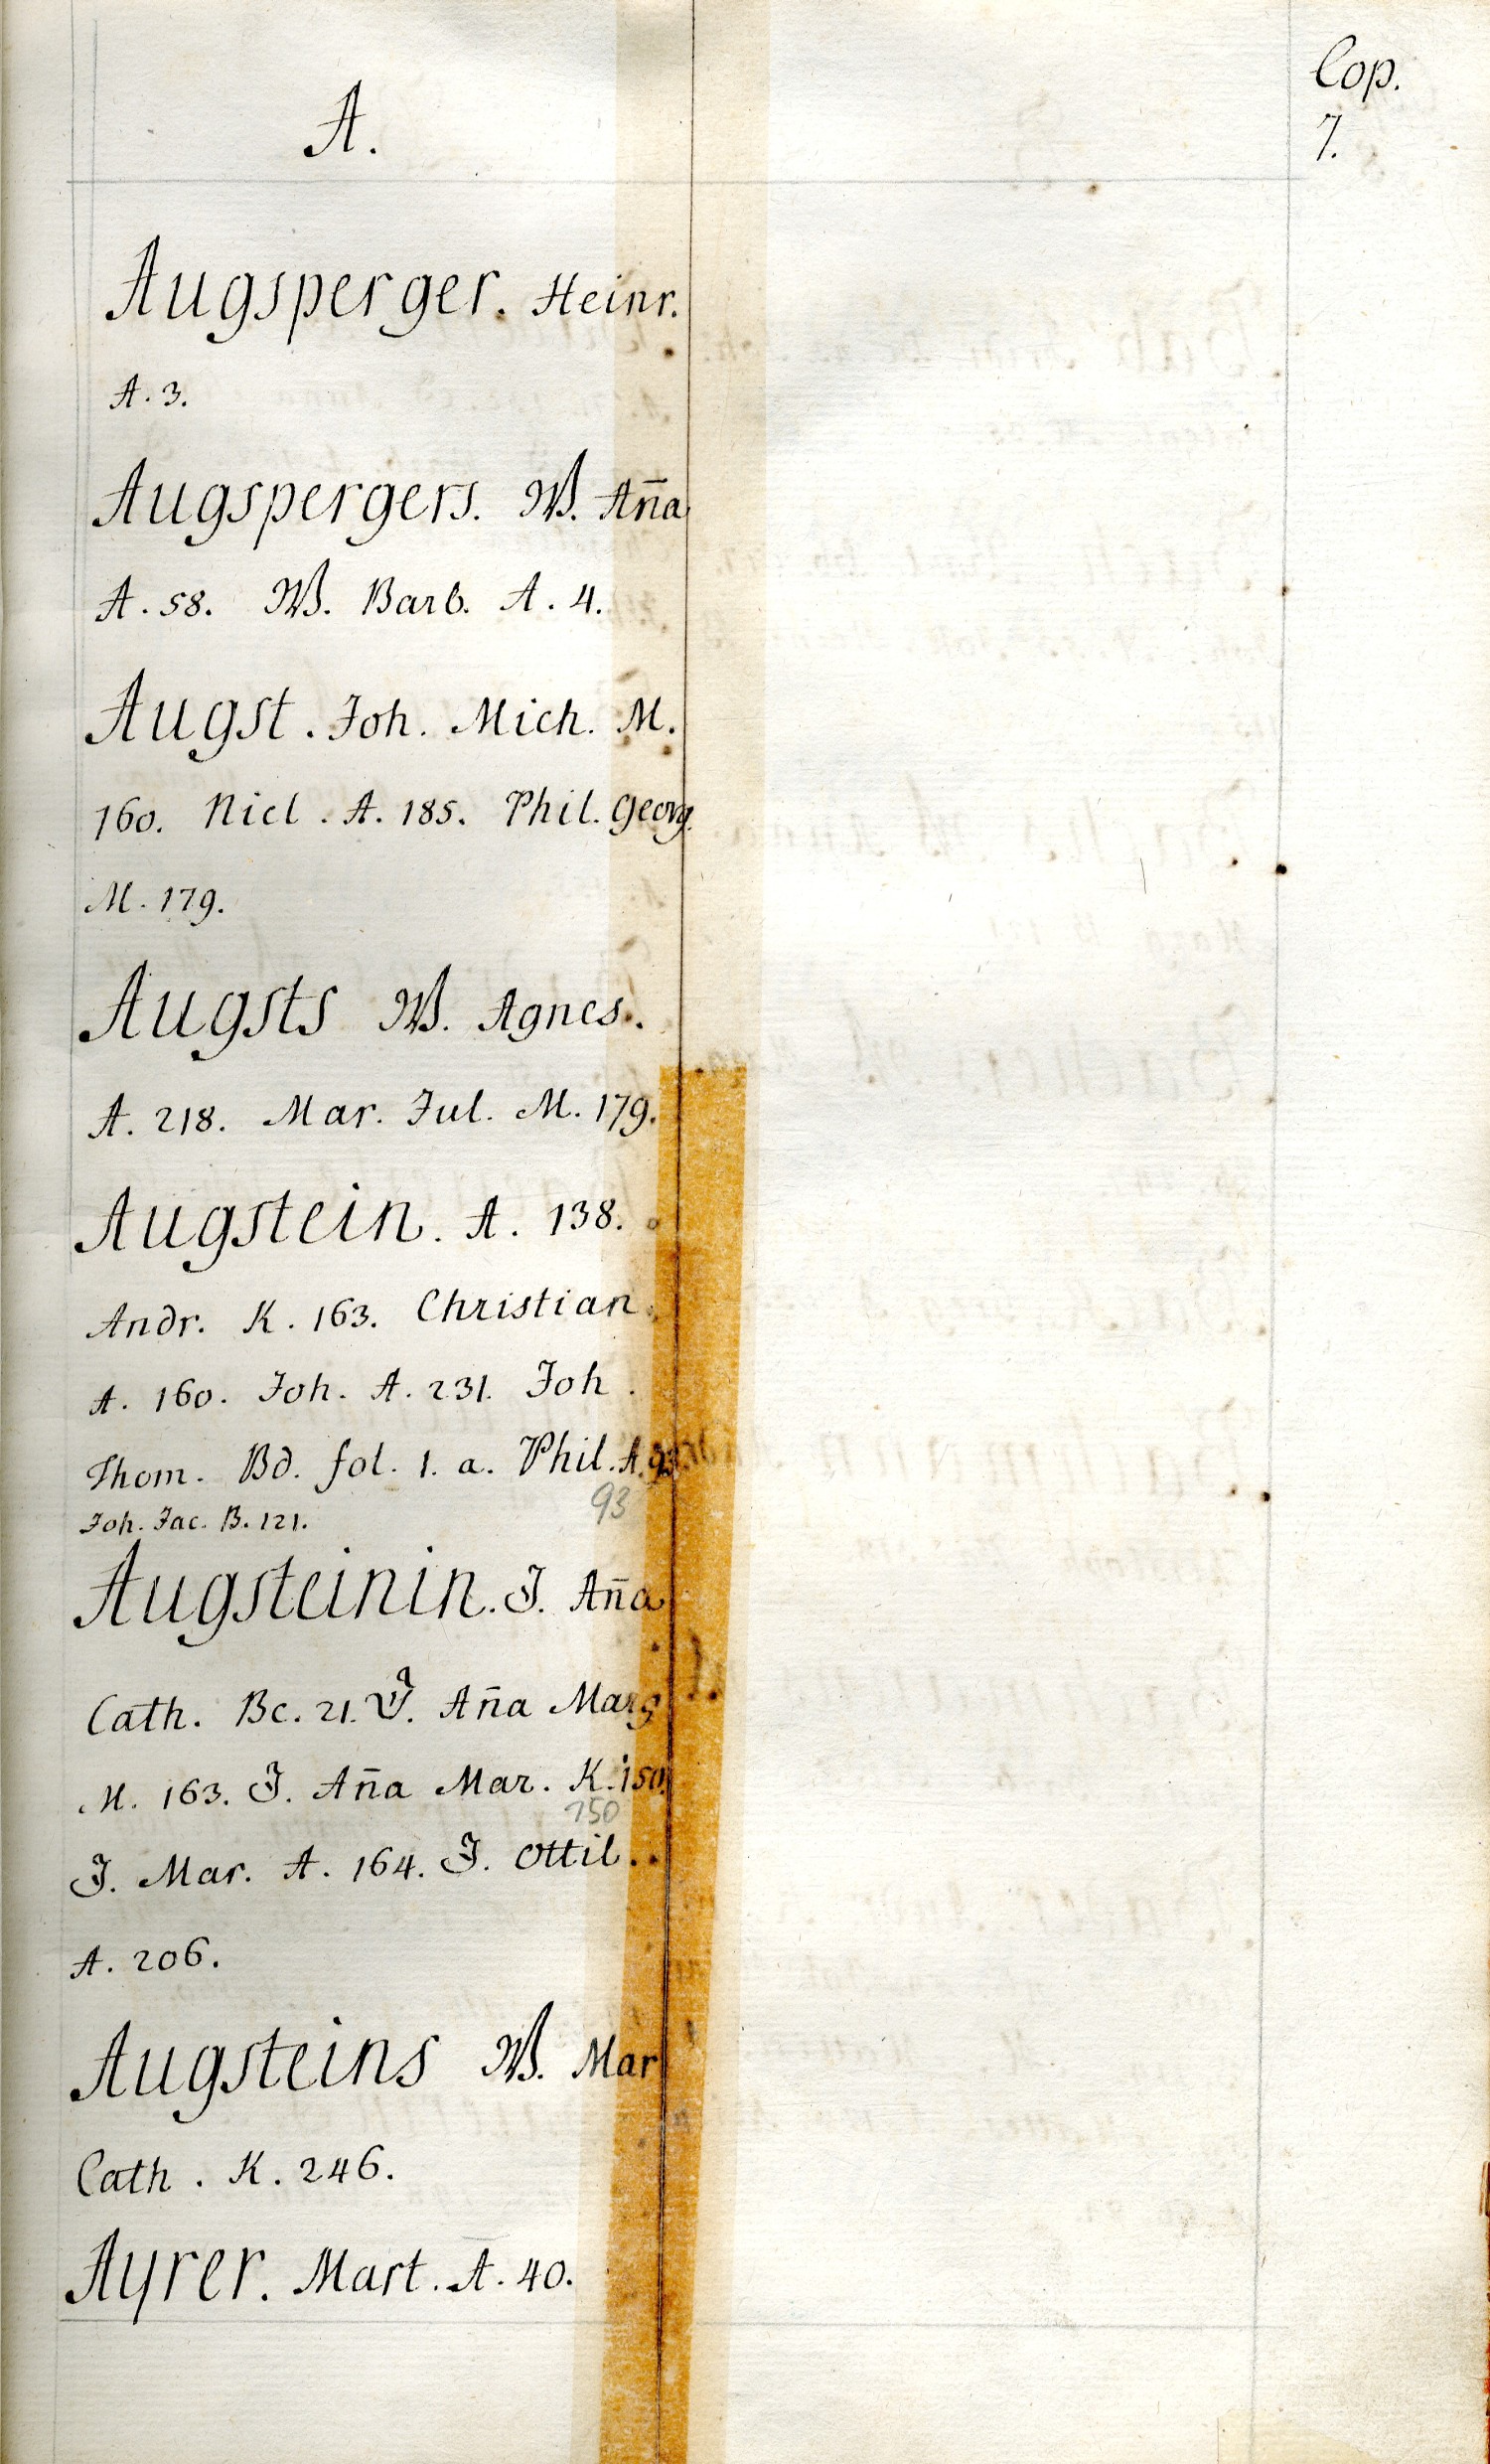 Cop.
7.
A.
Augsperger. Heinr.
A. 3.
Augspergers. W. Ana̅
A. 58. W. Barb. A. 4.
Augst. Joh. Mich. M.
160. Nicl. A. 185. Phil. Georg.
M. 179.
Augsts W. Agnes.
A. 218. Mar. Jul. M. 179.
Augstein. A. 138.
Andr. K. 163. Christian
A. 160. Joh. A. 231. Joh.
Thom. Bd. fol. 1. a. Phil. A. 93.
93
Joh. Jac. B. 121.
Augsteinin. J. An̅a
Cath. Bc. 21. J. An̅a Marg
M. 163. J. An̅a Mar. K. 150.
150
J. Mar. A. 164. J. Ottil.
A. 206.
Augsteins W. Mar
Cath. K. 246.
Ayrer. Mart. A. 40.